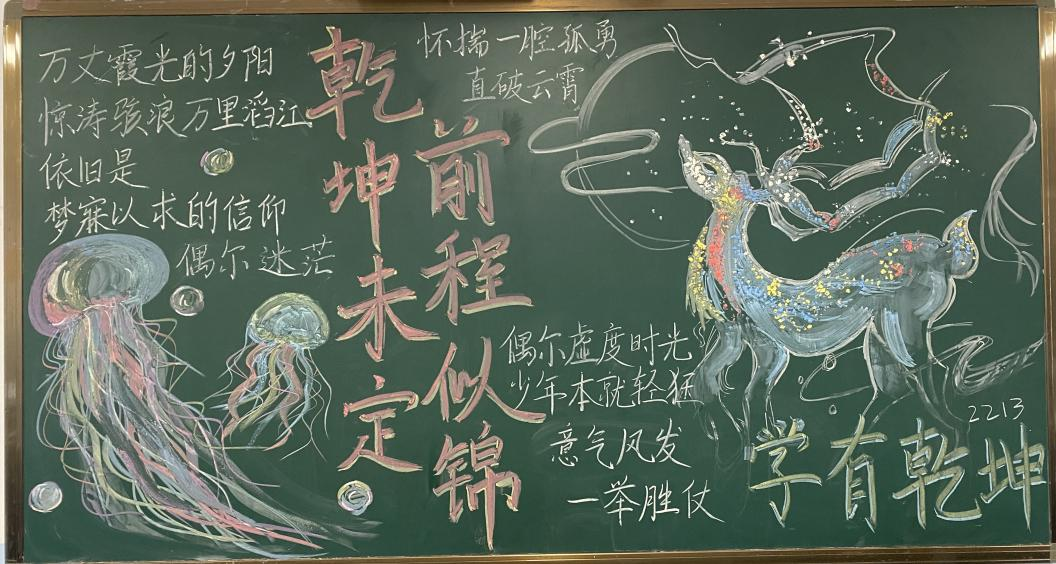 万丈霞光的夕阳
惊涛骇浪万里滔江
依旧是
梦寐以求的信仰
偶尔迷茫
乾坤未定
前程似锦
怀揣一腔孤勇
直破云霄
偶尔虚度时光
少年本就轻狂
意气风发
一举胜仗
2213
学有乾坤